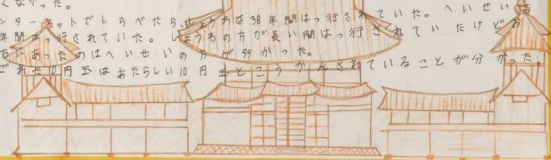 くなかった。
ンターネットでしらべたら、しょうわは38年間はっ行されていた。へいせい
年間はっ行されていた。しょうわの方が長い間はっ行されていたけど
あったのはへいせいの方が 99 かった。
10円玉はあたらしい10円玉とこうかんされていることが分かった。